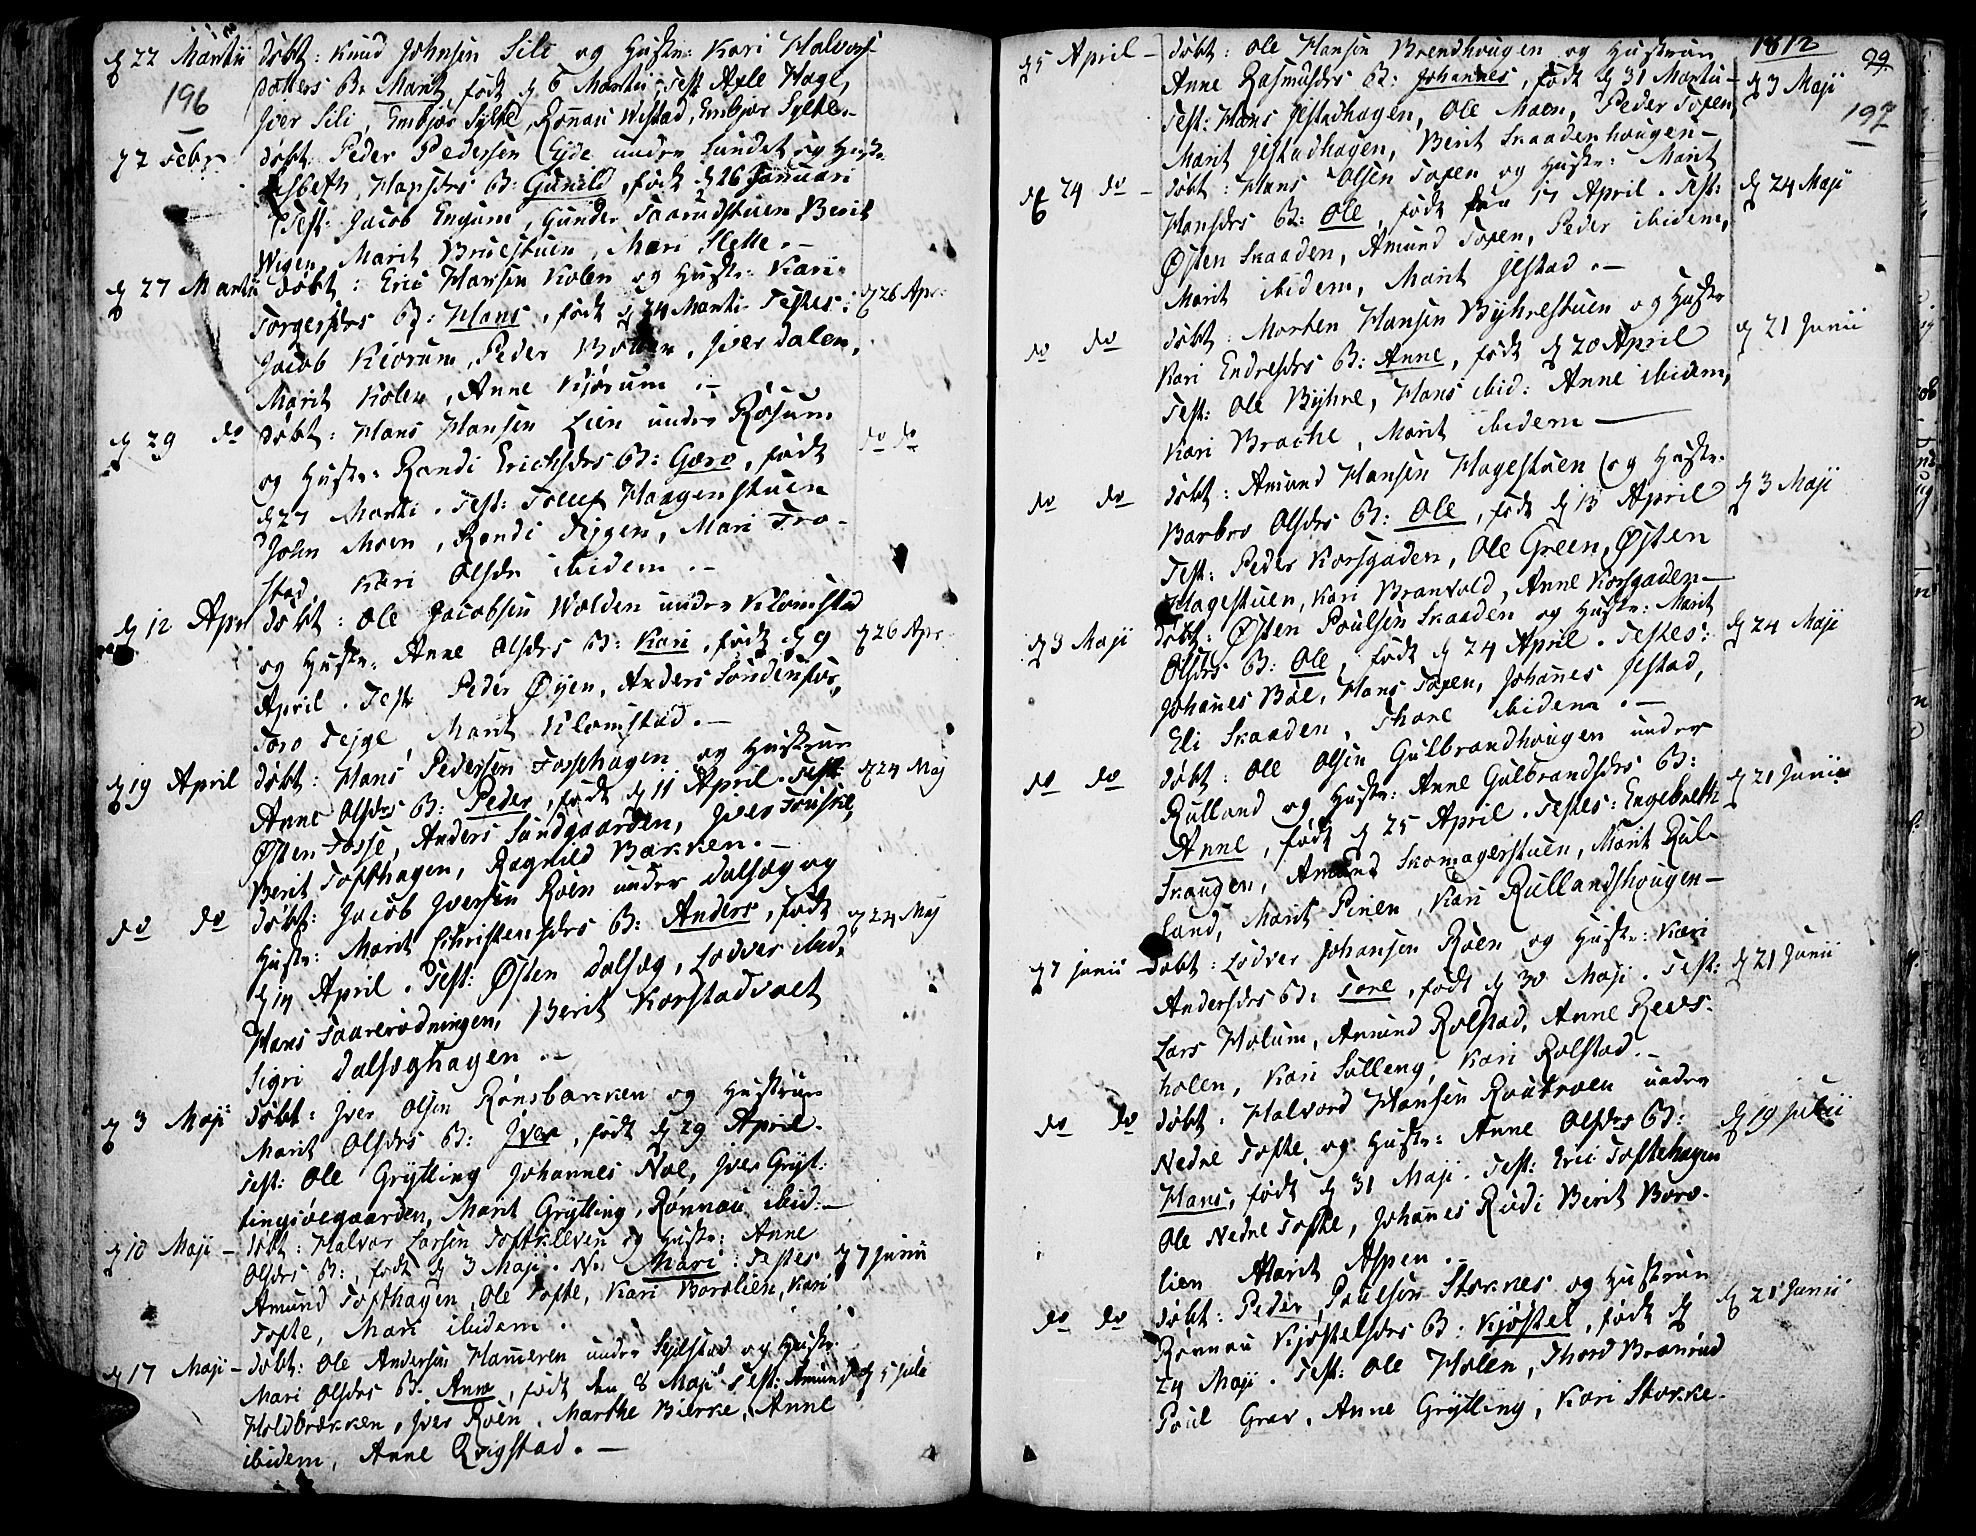 196
d 22 Martii døbt: Knud Johnsen Sili og Hustr: Kari Halvors-
datters B: Marit, født d 6 Martii, Test. Axle Hage,
Iver Sili, Embjør Sylte, Rønnau Wistad, Embjør Sylte.-
d 2 Febr. døbt Peder Pedersen Eyde under Sundet og Hustr.
Lisbeth Hansdrs B: Gunild, født d 26 Januari
Test: Jacob Engum, Gunder Taarudstuen Berit
Wigen, Marit Bruestuen, Mari Slette.-
d 27 Martii døbt: Eric Hansen Kolen og Hustr: Kari
Torgersdrs B: Hans, født d 24 Marti Testes: d 26 Apr.
Jacob Kiorum, Peder Iver Dalen,
Marit Kolen, Anne Kjørum.-
d 29 do døbt: Hans Hansen Lien under Rosum do do
og Hustr: Randi Erichsdrs B: Gøro, født
d 27 Marti. Test: Tollef Haagenstuen
John Moen, Randi Tejgen, Mari Tro-
stad, Kari Olsdr ibidem.-
d 12 Apr døbt: Ole Jacobsen Wolden under Klomstad
og Hustr: Anne Olsdrs B: Kari, født d 9 d 26 Apr.
April. Test: Peder Øyen, Anders Søndenfor,
Toro Tejge, Marit Klomstad.-
d 19 April døbt: Hans Pedersen Fossehagen og Hustrue
Anne Olsdrs B: Peder, født d 11 April. Test: d 24 Maj
Østen Fosse, Anders Sundgaarden, Iver Fouske,
Berit Tofthagen, Ragnild Bakken.-
do do døbt: Jacob Iversen Roen under Dalseg og
Hustr: Marit Christensdrs B: Anders, født d 24 Maj
d 14 April. Test: Østen Dalseg, Lodver ibid,
Hans Taarerødningen, Berit Korstadvolt
Sigri Dalseghagen.-
d 3 Maji døbt: Iver Olsen Rønsbakken og Hustrue
Marit Olsdrs B: Iver, født d 29 April.
Test: Ole Grytting Johannes Noe, Iver Gryt-
tingsvegaarden, Marit Grytting, Rønnau ibid:-
d 10 Maji - døbt: Halvor Larsen Toftekleven og Hustr: Anne
Olsdrs B:, født d 3 Maji. N: Mari: Testes d 7 Junii
Amund Tofthagen, Ole Tofte, Kari Borolien, Kari
Tofte, Mari ibidem.
d 17 Maji - døbt: Ole Andersen Hameren under Sylstad og Hustr:
Mari Olsdrs B: Anne, født den 8 Maji Test: Amund d 5 Julii
Holdbrækken, Iver Roen, Marthe Bierke, Anne
ibidem, Anne Qvigstad.-
1812
99.
197
d 5 April - døbt: Ole Hansen Brendhougen og Hustrue
Anne Rasmusdrs B: Johannes, født d 31 Martii - d 3 Maji
Test: Hans Jelstadhagen, Ole Moen, Peder Toxen,
Marit Jelstadhagen, Berit Skaadenhougen-
d 24 do - døbt: Hans Olsen Toxen og Hustr: Marit d 24 Maji
Hansdrs B: Ole, født den 17 April. Test:
Østen Skaaden, Amund Toxen, Peder ibidem,
Marit ibidem, Marit Jelstad.-
do do døbt: Morten Hansen Byhrestuen og Hustr d 21 Junii
Kari Endresdrs B: Anne, født d 20 April
Test: Ole Byhre, Hans ibid: Anne ibidem,
Kari Brache, Marit ibidem -
do do døbt: Amund Hansen Hagestuen og Hustr. d 3 Maji
Barbro Olsdrs B: Ole, født d 13 April
Test: Peder Korsgaden, Ole Green, Østen
Hagestuen, Kari Branvold, Anne Korsgaden-
d 3 Maji døbt: Østen Poulsen Skaaden og Hustr: Marit d 24 Maji
Olsdrs B: Ole, født d 24 April. Testes:
Johanes Bøe, Hans Toxen, Johanes Jelstad,
Eli Skaaden, Thore ibidem.-
do do døbt: Ole Olsen Gulbrandhougen under
Rulland og Hustr: Anne Gulbrandsdrs B: d 21 Junii
Anne, født d 25 April. Testes: Engebreth
Skougen, Amund Skomagerstuen, Marit Rul-
land, Marit Pinen, Kari Rullandshougen-
d 7 Junii - døbt: Lodver Johansen Roen og Hustr: Kari
Andersdrs B: Tore, født d 30 Maji. Test: d 21 Junii
Lars Holum, Amund Rolstad, Anne Revs-
holen, Kari Sulleng, Kari Rolstad.-
do do døbt. Halvord Hansen Routroen under
Nedre Tofte og Hustr: Anne Olsdrs B: d 19 Julii
Hans, født d 31 Maji. Test: Eric Toftehagen
Ole Nedre Tofte, Johanes Rudi Berit Boro-
lien Marit Aspen.-
do do døbt: Peder Poulsen Stoknes og Hustrue d 21 Junii
Rønnau Kjøstelsdrs B: Kjøstel, født d
24 Maji. Test: Ole Holen, Thord Branrud
Poul Grov, Anne Grytting, Kari Stokke.